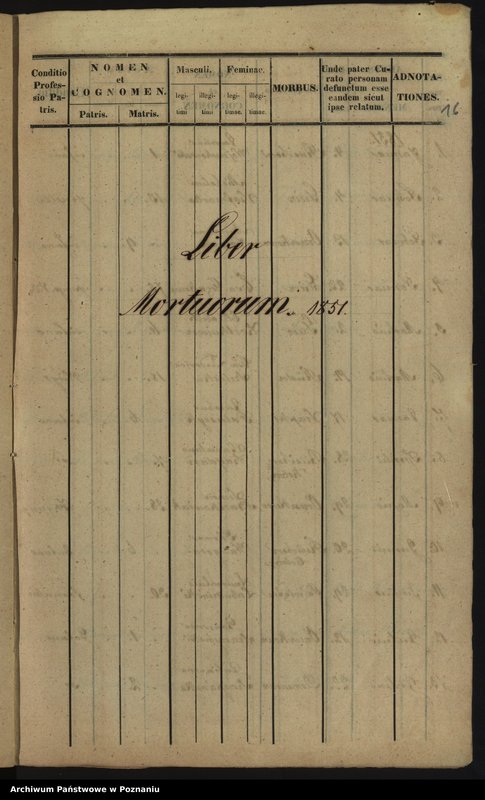 Conditio
Profes-
sio Pa-
tris.
NOMEN
et
COGNOMEN.
Patris.
Matris.
Masculi.
legi-
timi
illegi-
timi
Feminae.
legi-
timae.
illegi-
timae.
MORBUS.
Unde pater Cu-
rato personam
defunctum esse
eandem sicut
ipse relatum.
ADNOTA-
TIONES.
16
Liber
Mortuorum. 1851.
Archiwum Państwowe w Poznaniu